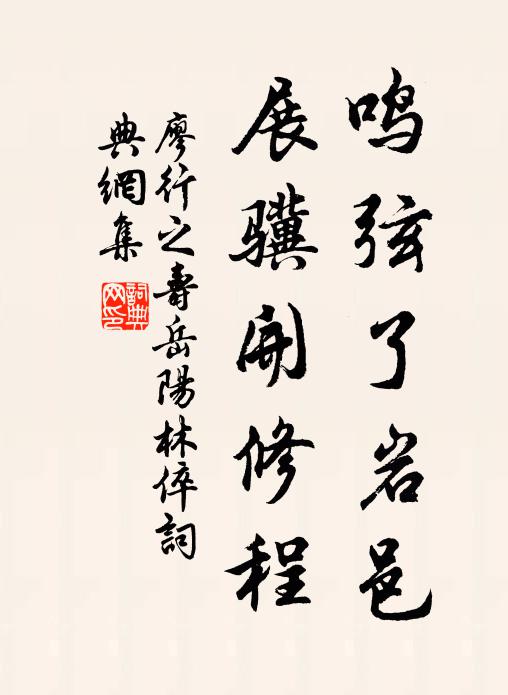 鸣弦了岩邑
展骥開修程
廖行之壽岳陽林倅詞
典網集
詞典网印